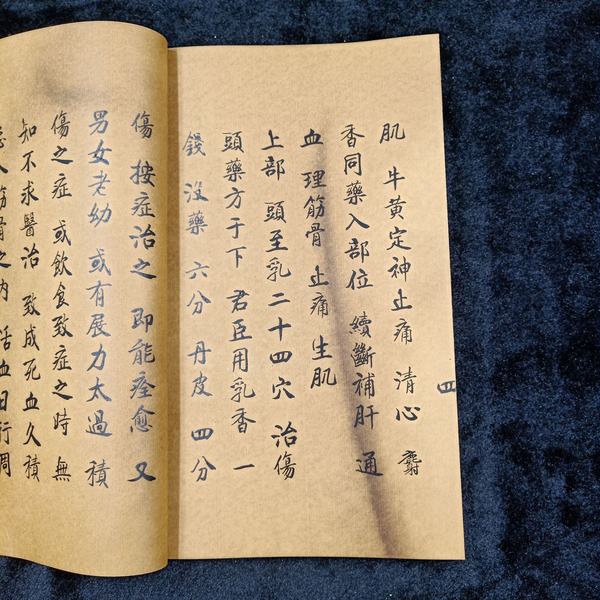 肌 牛黄定神止痛 清心 麝
香同藥入部位 續斷補肝 通
血 理筋骨 止痛 生肌
上部 頭至乳 二十四穴 治傷
頭藥方于下 君臣用乳香 一
錢 沒藥 六分 丹皮 四分
四
傷 按症治之 即能痊愈 又
男女老幼 或有展力太過 積
傷之症 或飲食致症之時 無
知不求醫治 致成死血久積
入筋骨之内 活血日行周